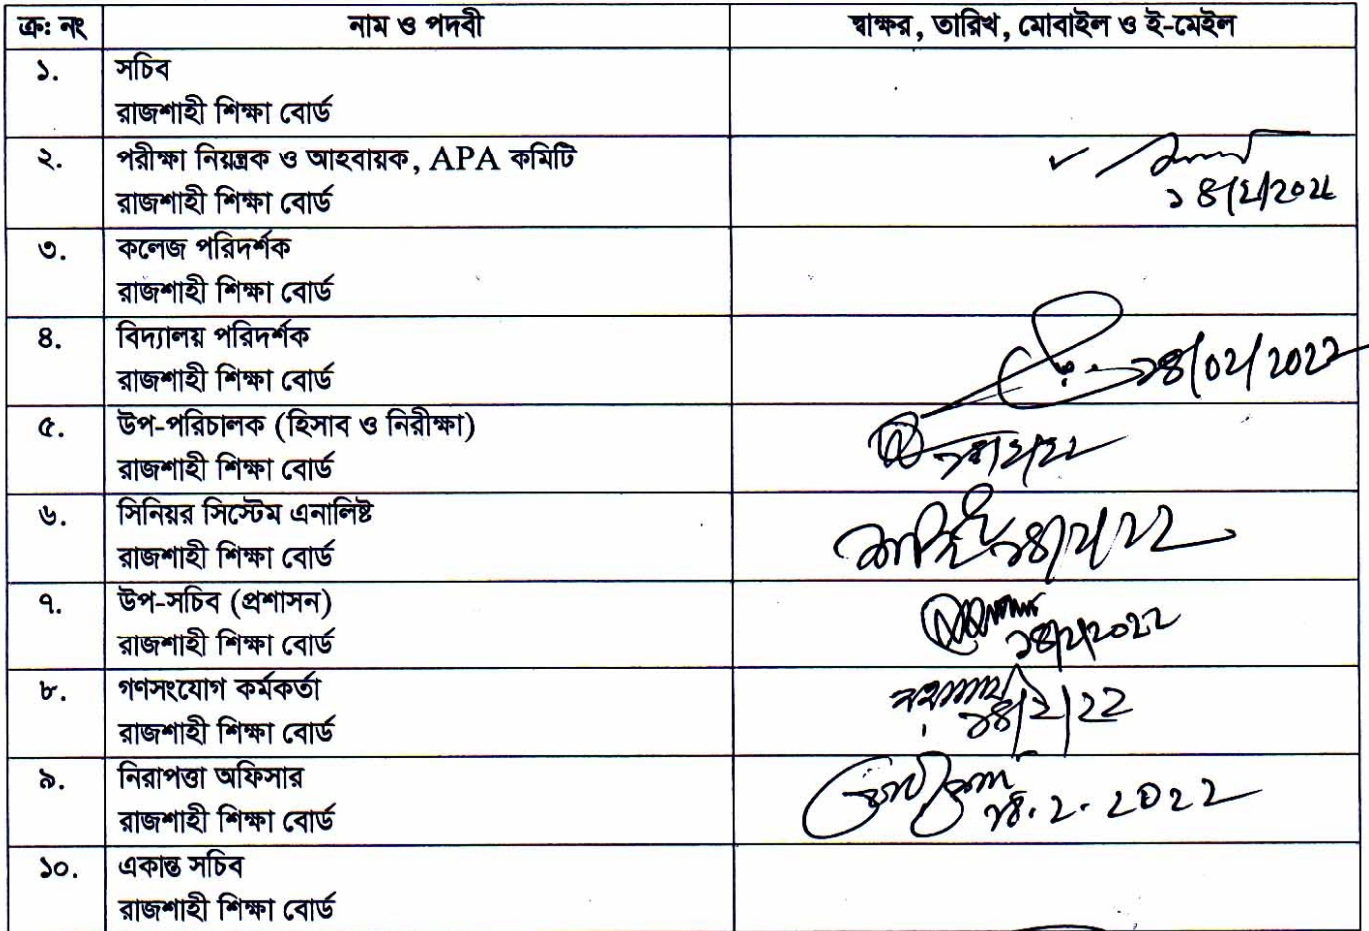 ক্র: নং নাম ও পদবী স্বাক্ষর, তারিখ, মোবাইল ও ই-মেইল
১. সচিব
রাজশাহী শিক্ষা বোর্ড
২. পরীক্ষা নিয়ন্ত্রক ও আহবায়ক, APA কমিটি
রাজশাহী শিক্ষা বোর্ড
৩. কলেজ পরিদর্শক
রাজশাহী শিক্ষা বোর্ড
৪. বিদ্যালয় পরিদর্শক
রাজশাহী শিক্ষা বোর্ড ১৪/০২/২০২২
৫. উপ-পরিচালক (হিসাব ও নিরীক্ষা)
রাজশাহী শিক্ষা বোর্ড ১৪/২/২২
৬. সিনিয়র সিস্টেম এনালিষ্ট
রাজশাহী শিক্ষা বোর্ড ১৪/২/২২
৭. উপ-সচিব (প্রশাসন)
রাজশাহী শিক্ষা বোর্ড ১৪/২/২০২২
৮. গণসংযোগ কর্মকর্তা
রাজশাহী শিক্ষা বোর্ড ১৪/২/২২
৯. নিরাপত্তা অফিসার
রাজশাহী শিক্ষা বোর্ড ১৪.২.২০২২
১০. একান্ত সচিব
রাজশাহী শিক্ষা বোর্ড